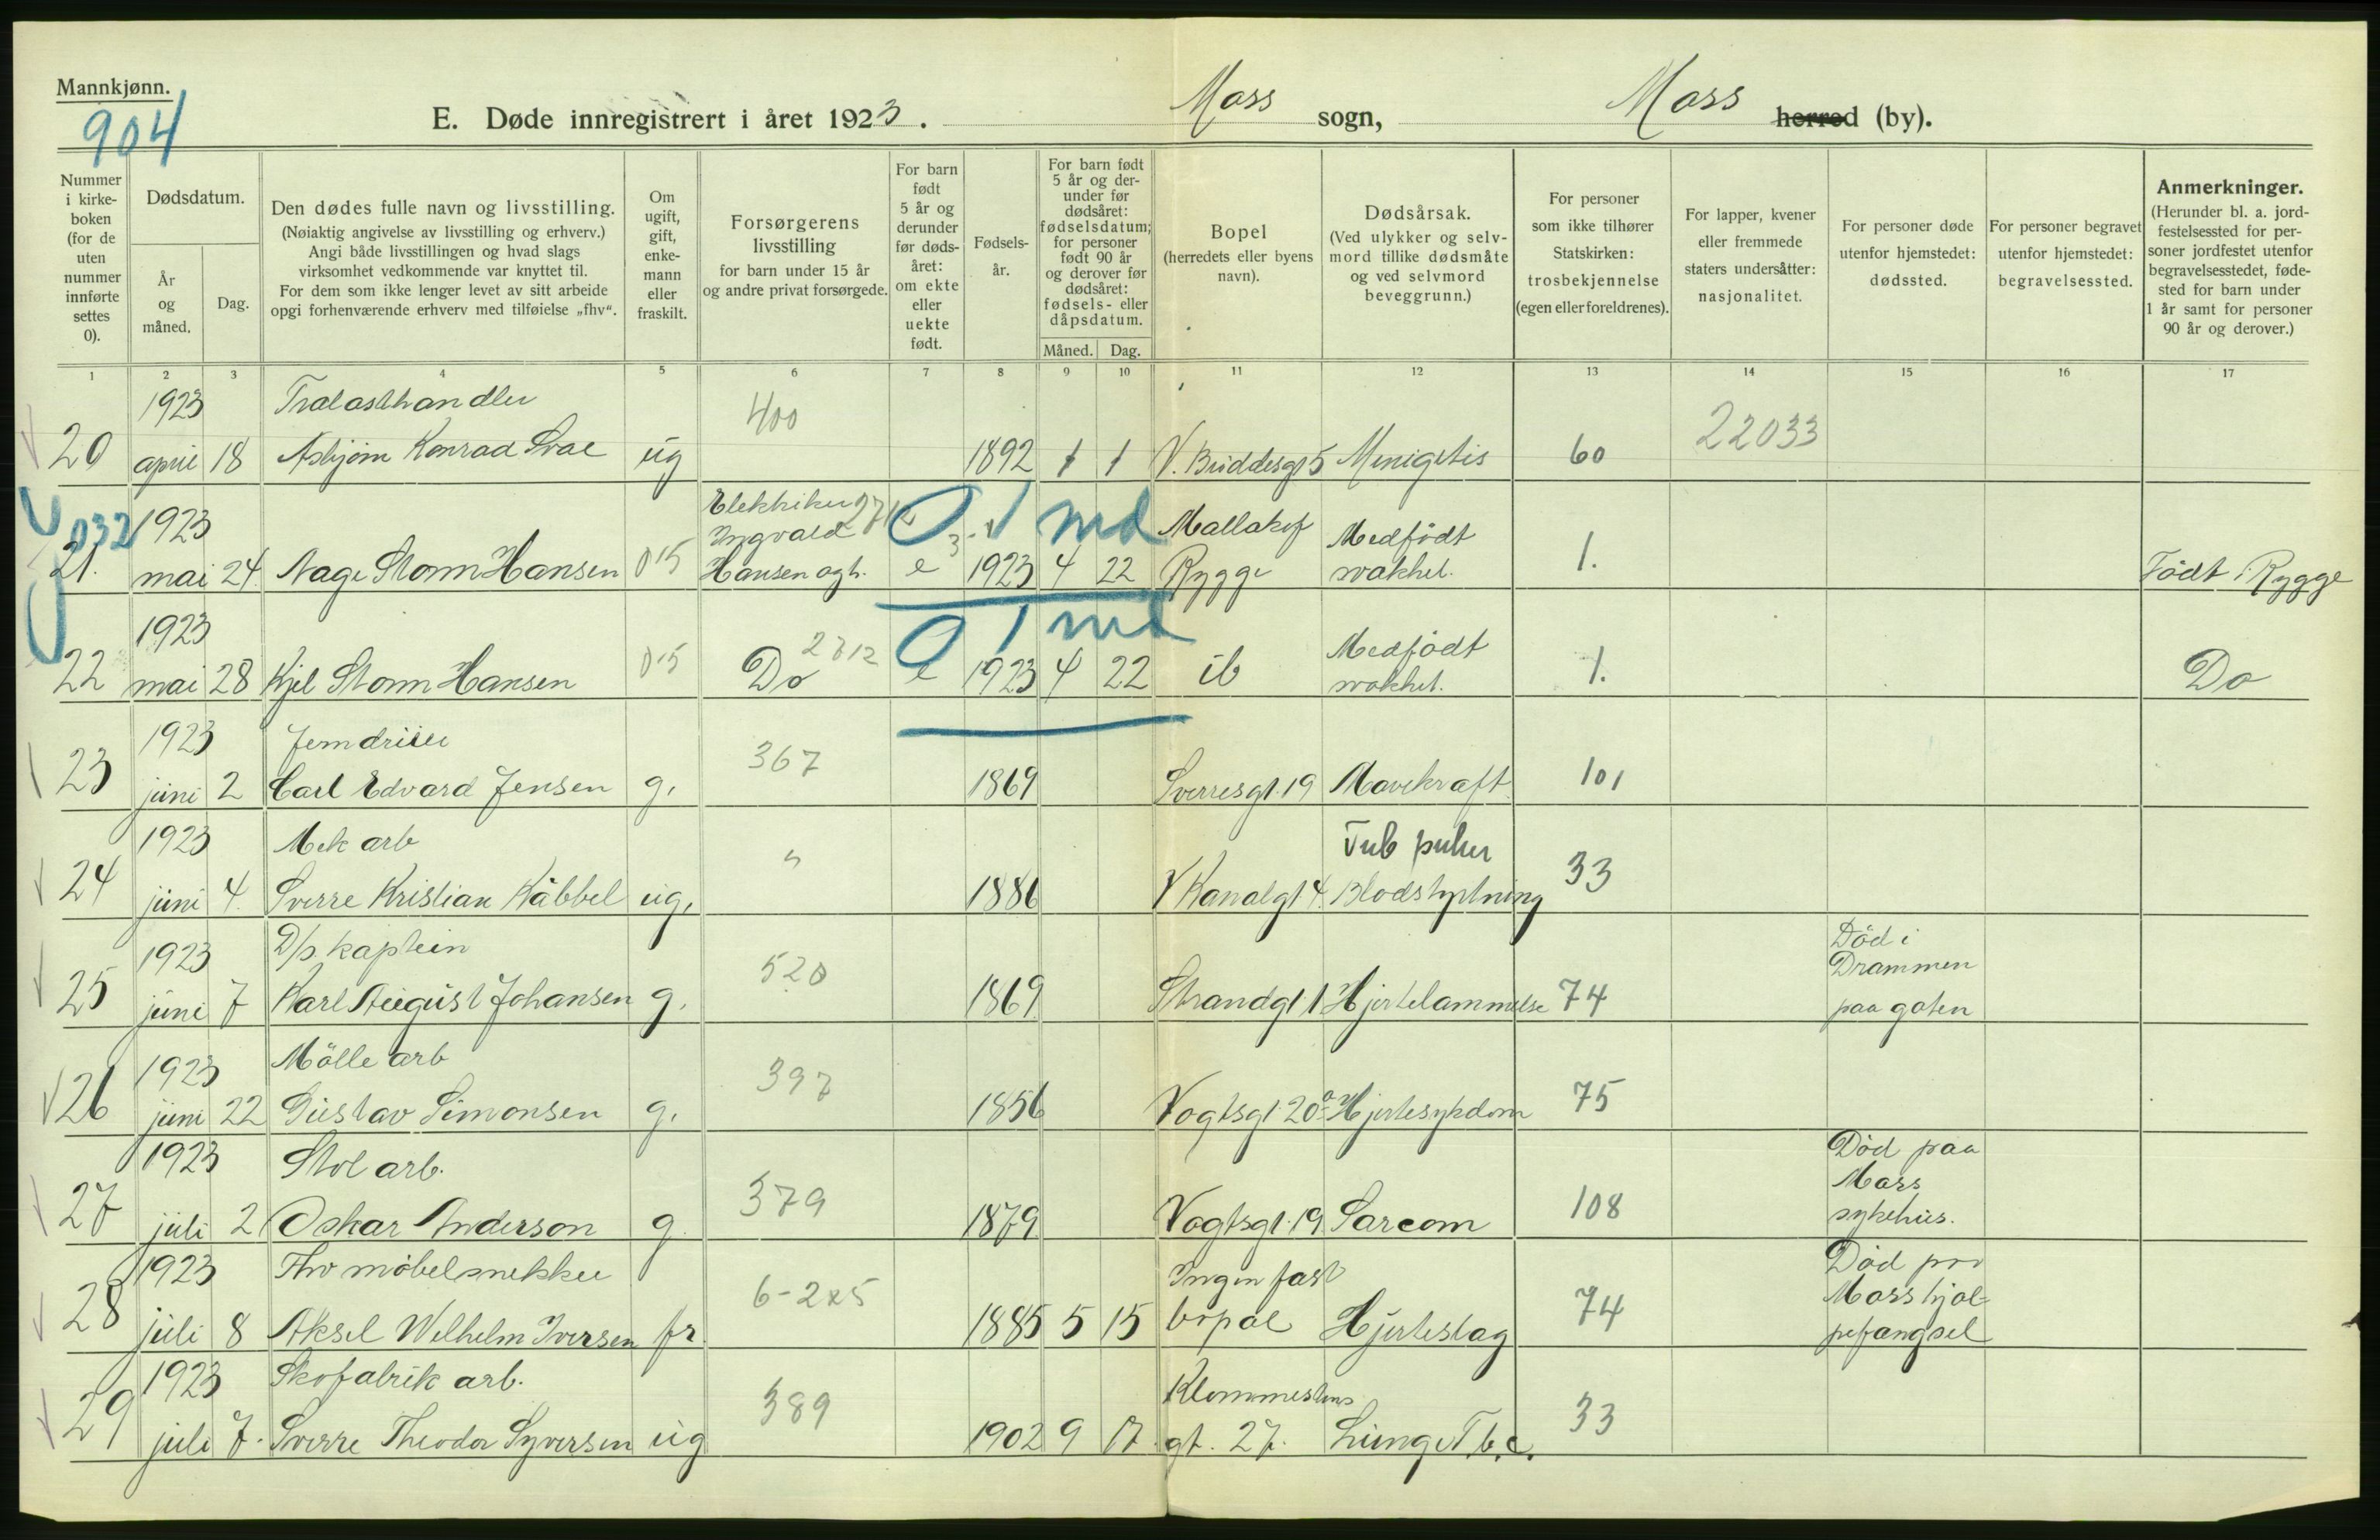 Mannkjønn.
904
E. Døde innregistrert i året 1923. Moss sogn, Moss herred (by).
Nummer i kirkeboken (for de uten nummer innførte settes 0).
Dødsdatum.
År og måned.
Dag.
Den dødes fulle navn og livsstilling.
(Nøiaktig angivelse av livsstilling og erhverv.)
Angi både livsstillingen og hvad slags
virksomhet vedkommende var knyttet til.
For dem som ikke lenger levet av sitt arbeide
opgi forhenværende erhverv med tilføielse „fhv“.
Om ugift, gift, enkemann eller fraskilt.
Forsørgerens livsstilling
for barn under 15 år
og andre privat forsørgede.
For barn født 5 år og derunder før dødsåret: om ekte eller uekte født.
Fødselsår.
For barn født 5 år og derunder før dødsåret: fødselsdatum; for personer født 90 år og derover før dødsåret: fødsels- eller dåpsdatum.
Måned. Dag.
Bopel
(herredets eller byens navn).
Dødsårsak.
(Ved ulykker og selvmord tillike dødsmåte og ved selvmord beveggrunn.)
For personer som ikke tilhører Statskirken: trosbekjennelse (egen eller foreldrenes).
For lapper, kvener eller fremmede staters undersåtter: nasjonalitet.
For personer døde utenfor hjemstedet: dødssted.
For personer begravet utenfor hjemstedet: begravelsessted.
Anmerkninger.
(Herunder bl. a. jordfestelsessted for personer jordfestet utenfor begravelsesstedet, fødested for barn under 1 år samt for personer 90 år og derover.)
1 2 3 4 5 6 7 8 9 10 11 12 13 14 15 16 17
1923 Tralasthandler 400 22033
20 april 18 Asbjørn Konrad Svae ug 1892 1 1 V. Briddesgt 5 Menigitis 60
032 1923 Elektriker Ingvald 0 1 md Mallakof Medfödt
21. mai 24. Aage Storm Hansen 015 Hansen ogh. e 1923 4 22 Rygge svakhet. 1. Födt i Rygge
1923 2712 0 1 md Medfödt
22 mai 28 Kjel Storm Hansen 015 Do e 1923 4 22 ib svakhet. 1. Do
1923 Jerndreier 367
23 juni 2 Carl Edvard Jensen g. 1869 Sverresgt. 19 Mavekræft 101
1923 Mek arb " Tub pulm
24 juni 4. Sverre Kristian Kåbbel ug. 1886 V Kanalgt 4. Blodstyrtning 33
1923 D/s kaptein 520 Död i Drammen
25 juni 7 Karl August Johansen g. 1869 Strandgt 1 Hjertelammelse 74 paa gaten
1923 Mölle arb 397
26 juni 22 Gustav Simonsen g. 1856 Vogtsgt 20a Hjertesykdom 75
1923 Stol arb. 379 Död paa Moss
27 juli 2 Oskar Anderson g. 1879 Vogtsgt. 19 Sarcom 108 sykehus.
1923 Fhv möbelsnekker 6-2x5 Ingen fast Död paa Moss hjel-
28 juli 8 Aksel Wilhelm Iversen fr. 1885 5 15 bopæl Hjerteslag 74 pefængsel
1923 Skofabrik arb. 389
29 juli 7. Sverre Theodor Syversen ug 1902 9 17. gt. 27. Lunge T.b.c. 33